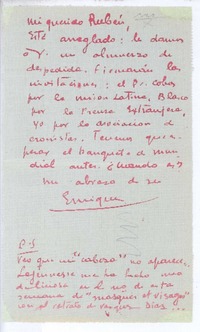 mi querido Rubén,
Está arreglado: le damos
a V. un almuerzo de
despedida. Firmarán las
invitaciones: el Pr. Cobos
por la Unión Latina, Blanco
por la Prensa Extranjera,
yo por la asociación de
cronistas. Tenemos que
el banquete de
antes. ¿Cuándo es?
un abrazo de su
Enrique
P.S
Veo que mi "cabeza" no aparece.
me ha hecho una
en el no de esta
semana de "masques et visages"
con el retrato de Vargas Vila...